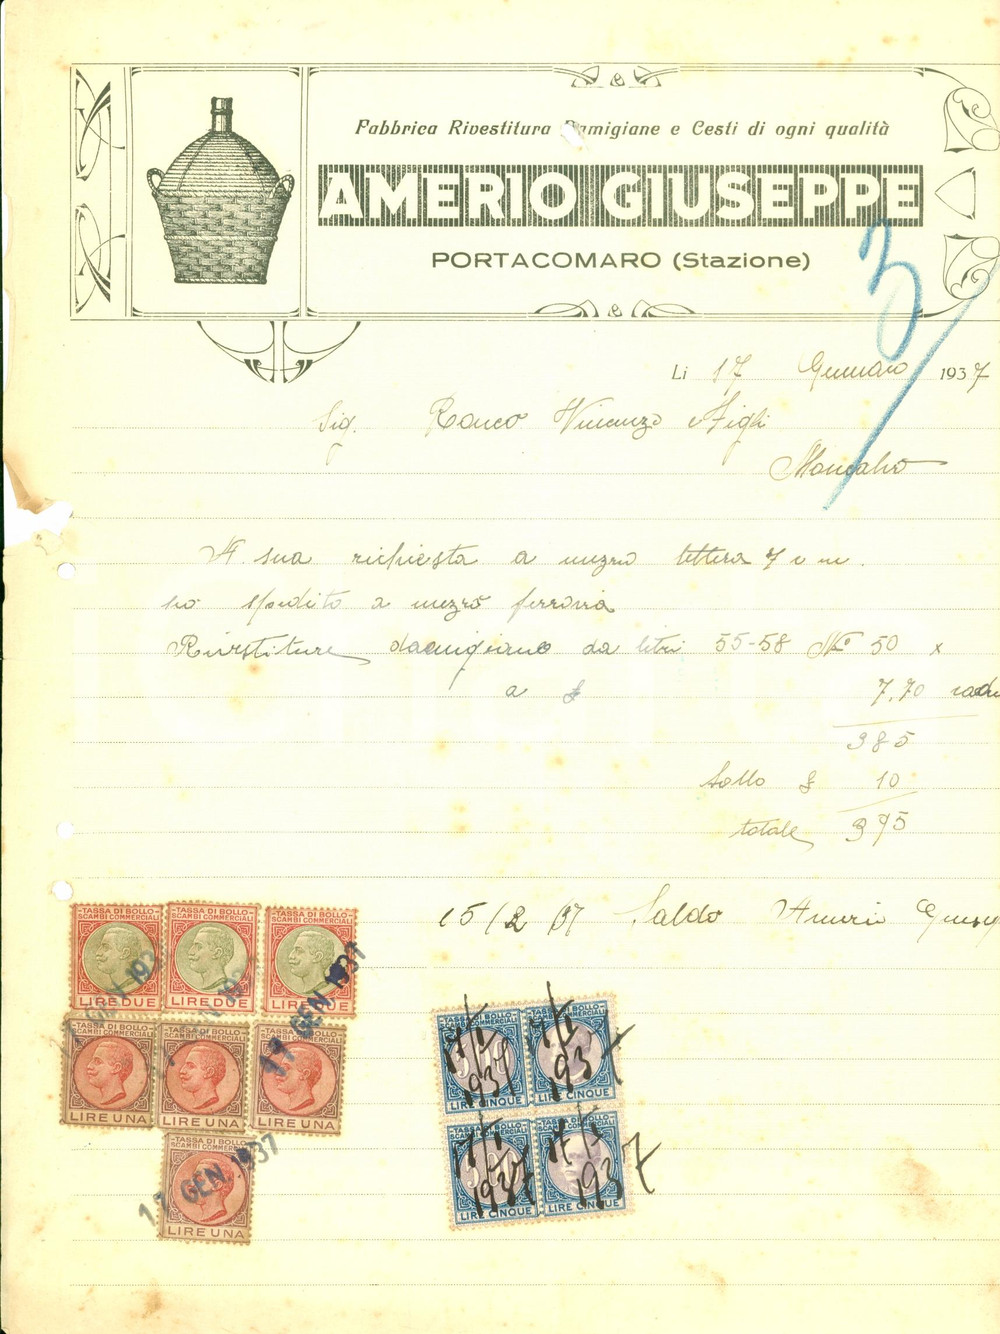 Fabbrica Rivestitura Damigiane e Cesti di ogni qualità
AMERIO GIUSEPPE
PORTACOMARO (Stazione)
3/
Li 17 Gennaio 1937
Sig. Ronco Vincenzo e Figli
Moncalvo
A sua richiesta a mezzo lettera 7 c m.
ho spedito a mezzo ferrovia
Rivestiture damigiane da litri 55-58 No 50 x
a £ 7,70 cadu
385
bollo £ 10
totale 395
15/2 37 Saldo Amerio Giusep
TASSA DI BOLLO
SCAMBI COMMERCIALI
LIRE DUE
TASSA DI BOLLO
SCAMBI COMMERCIALI
LIRE DUE
TASSA DI BOLLO
SCAMBI COMMERCIALI
LIRE DUE
17 GEN 1937
17 GEN 1937
17 GEN 1937
TASSA DI BOLLO
SCAMBI COMMERCIALI
LIRE UNA
TASSA DI BOLLO
SCAMBI COMMERCIALI
LIRE UNA
TASSA DI BOLLO
SCAMBI COMMERCIALI
LIRE UNA
TASSA DI BOLLO
SCAMBI COMMERCIALI
LIRE UNA
17 GEN 1937
TASSA DI BOLLO
SCAMBI COMMERCIALI
LIRE CINQUE
17/1
1937
TASSA DI BOLLO
SCAMBI COMMERCIALI
LIRE CINQUE
17/1
1937
TASSA DI BOLLO
SCAMBI COMMERCIALI
LIRE CINQUE
17/1
1937
TASSA DI BOLLO
SCAMBI COMMERCIALI
LIRE CINQUE
17/1
1937